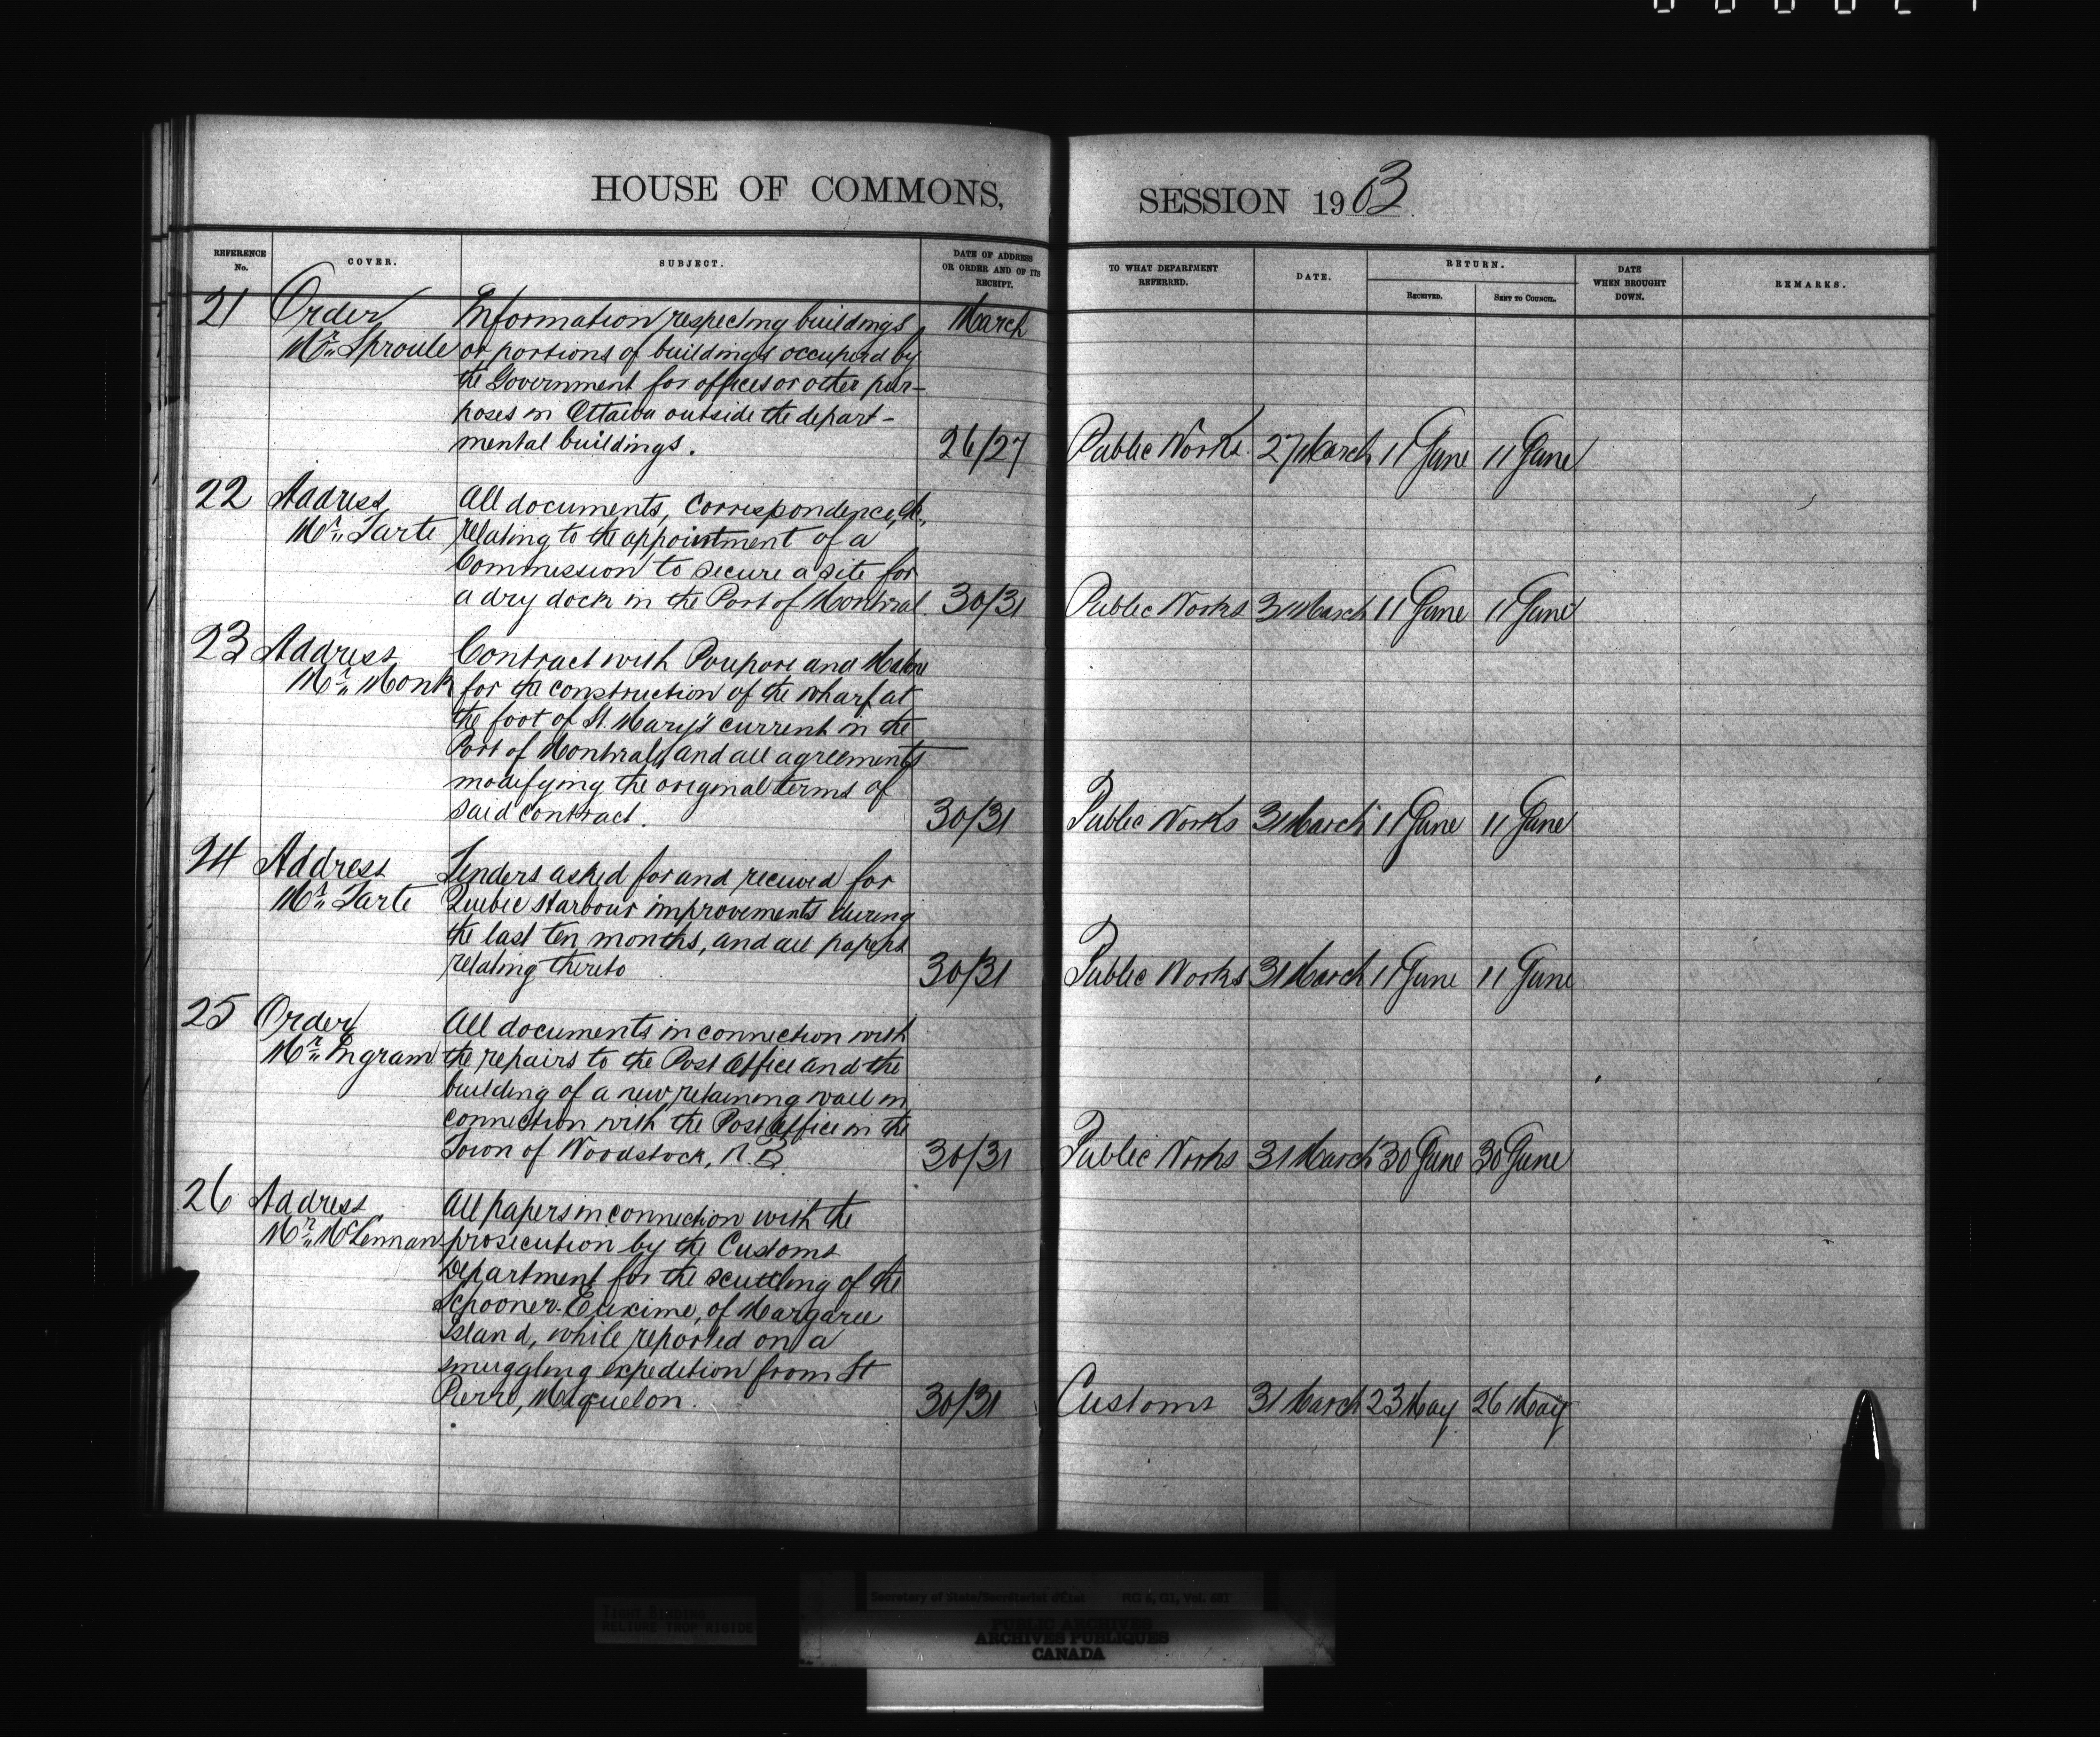 HOUSE OF COMMONS, SESSION 1903
REFERENCE No. COVER. SUBJECT. DATE OF ADDRESS OR ORDER AND OF ITS RECEIPT. TO WHAT DEPARTMENT REFERRED. DATE. RETURN. RECEIVED. SENT TO COUNCIL. DATE WHEN BROUGHT DOWN. REMARKS.
21 Order Information respecting buildings March
Mr. Sproule or portions of buildings occupied by
the Government for offices or other pur-
poses in Ottawa outside the depart-
mental buildings. 26/27 Public Works. 27 March 11 June 11 June
22 Address All documents, correspondence, &c.,
Mr. Tarte relating to the appointment of a
Commission to secure a site for
a dry dock in the Port of Montreal. 30/31 Public Works 31 March 11 June 11 June
23 Address Contract with Poupore and Malone
Mr. Monk for the construction of the wharf at
the foot of St. Mary's current in the
Port of Montreal, and all agreements
modifying the original terms of
said contract. 30/31 Public Works 31 March 11 June 11 June
24 Address Tenders asked for and received for
Mr. Tarte Quebec Harbour improvements during
the last ten months, and all papers
relating thereto 30/31 Public Works 31 March 11 June 11 June
25 Order All documents in connection with
Mr. Ingram the repairs to the Post Office and the
building of a new retaining wall in
connection with the Post Office in the
Town of Woodstock, N.B. 30/31 Public Works 31 March 30 June 30 June
26 Address All papers in connection with the
Mr. McLennan prosecution by the Customs
Department for the scuttling of the
Schooner Euxime, of Margaree
Island, while reported on a
smuggling expedition from St
Pierre, Miquelon. 30/31 Customs 31 March 23 May 26 May
TIGHT BINDING
RELIURE TROP RIGIDE
Secretary of State/Secrétariat d'État RG 6, G1, Vol. 681
PUBLIC ARCHIVES
ARCHIVES PUBLIQUES
CANADA